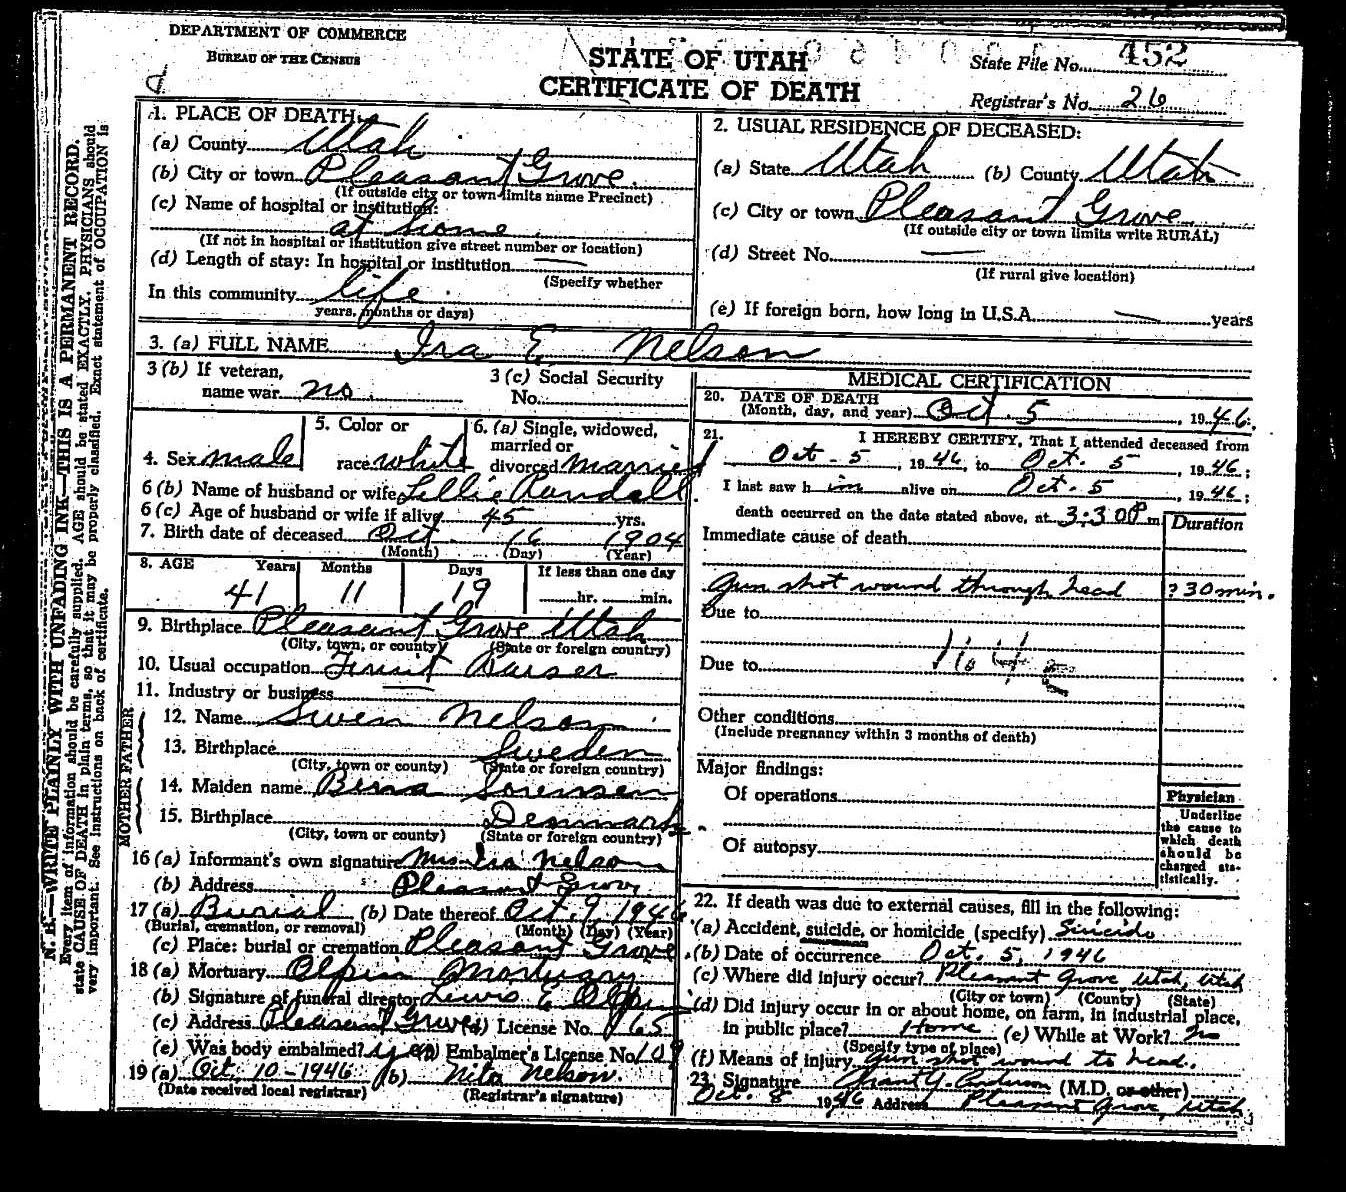 DEPARTMENT OF COMMERCE
BUREAU OF THE CENSUS
STATE OF UTAH
CERTIFICATE OF DEATH
State File No. 452
Registrar's No. 26
1. PLACE OF DEATH:
(a) County Utah
(b) City or town Pleasant Grove.
(If outside city or town limits name Precinct)
(c) Name of hospital or institution:
at home
(If not in hospital or institution give street number or location)
(d) Length of stay: In hospital or institution
(Specify whether
In this community life
years, months or days)
2. USUAL RESIDENCE OF DECEASED:
(a) State Utah (b) County Utah
(c) City or town Pleasant Grove
(If outside city or town limits write RURAL)
(d) Street No. —
(If rural give location)
(e) If foreign born, how long in U.S.A. — years
3. (a) FULL NAME Ira E Nelson
3 (b) If veteran,
name war no
3 (c) Social Security
No.
4. Sex male
5. Color or
race white
6. (a) Single, widowed,
married or
divorced married
6 (b) Name of husband or wife Lillie Randall
6 (c) Age of husband or wife if alive 45 yrs.
7. Birth date of deceased Oct 16 1904
(Month) (Day) (Year)
8. AGE Years Months Days If less than one day
41 11 19 hr. min.
9. Birthplace Pleasant Grove Utah
(City, town, or county) (State or foreign country)
10. Usual occupation Fruit Raiser
11. Industry or business
FATHER
12. Name Swen Nelson
13. Birthplace Sweden
(City, town or county) (State or foreign country)
MOTHER
14. Maiden name Sorensen
15. Birthplace Denmark
(City, town or county) (State or foreign country)
16 (a) Informant's own signature Mrs Ira Nelson
(b) Address Pleasant Grove
17 (a) Burial (b) Date thereof Oct. 9, 1946
(Burial, cremation, or removal) (Month) (Day) (Year)
(c) Place: burial or cremation Pleasant Grove
18 (a) Mortuary Olpin Mortuary
(b) Signature of funeral director Lewis E Olpin
(c) Address Pleasant Grove (d) License No. 65
(e) Was body embalmed? yes (f) Embalmer's License No. 109
19 (a) Oct. 10-1946 (b) Nita Nelson.
(Date received local registrar) (Registrar's signature)
MEDICAL CERTIFICATION
20. DATE OF DEATH
(Month, day, and year) Oct 5, 1946.
21. I HEREBY CERTIFY, That I attended deceased from
Oct - 5, 1946, to Oct. 5, 1946;
I last saw him alive on Oct. 5, 1946;
death occurred on the date stated above, at 3:30 P m
Duration
Immediate cause of death
Gun shot wound through head ? 30 min.
Due to
Due to
Other conditions
(Include pregnancy within 3 months of death)
Major findings:
Of operations
Of autopsy
Physician
Underline
the cause to
which death
should be
charged sta-
tistically.
22. If death was due to external causes, fill in the following:
(a) Accident, suicide, or homicide (specify) Suicide
(b) Date of occurrence Oct. 5, 1946
(c) Where did injury occur? Pleasant Grove, Utah, Utah
(City or town) (County) (State)
(d) Did injury occur in or about home, on farm, in industrial place,
in public place? Home (e) While at Work? no
(Specify type of place)
(f) Means of injury Gun shot wound to head.
23. Signature Grant Y. Anderson (M.D. or other)
Oct. 8 1946 Address Pleasant Grove, Utah
N. B.—WRITE PLAINLY WITH UNFADING INK—THIS IS A PERMANENT RECORD.
Every item of information should be carefully supplied. AGE should be stated EXACTLY. PHYSICIANS should
state CAUSE OF DEATH in plain terms, so that it may be properly classified. Exact statement of OCCUPATION is
very important. See instructions on back of certificate.